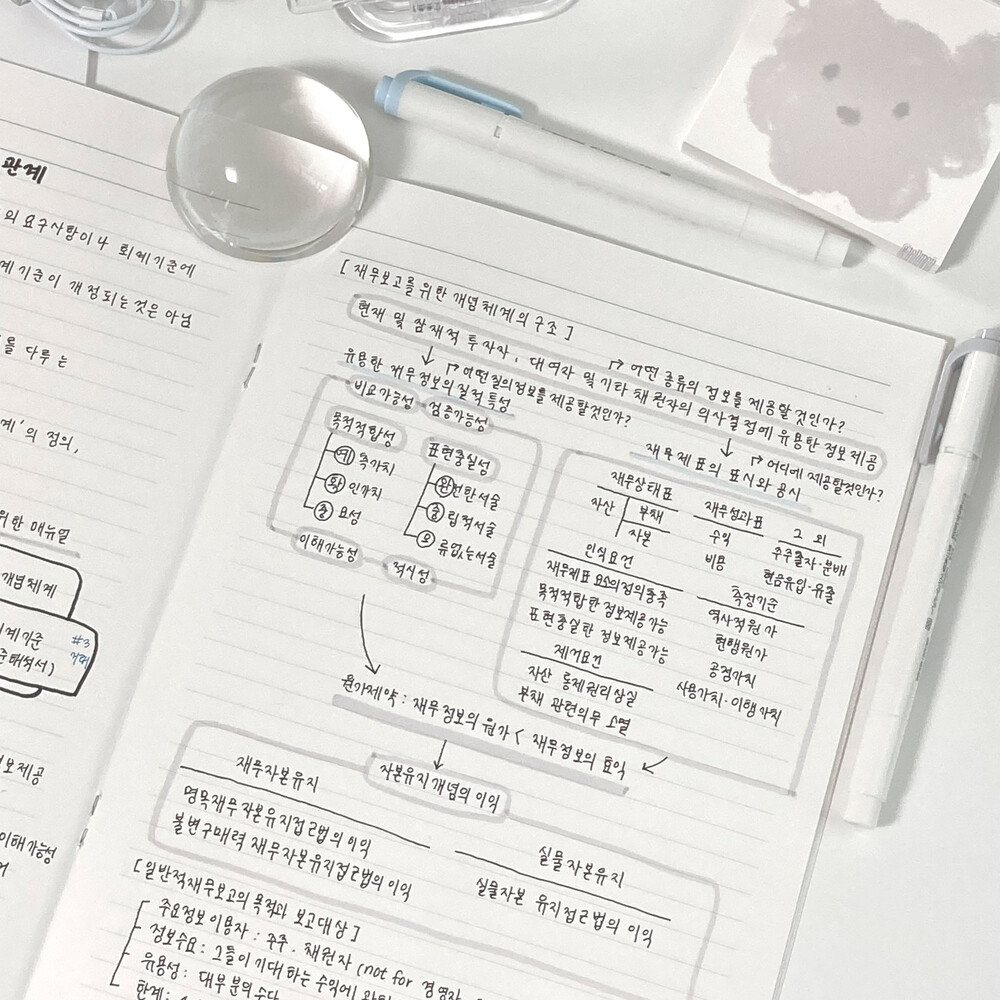 관계
의 요구사항이나 회계기준에
계기준이 개정되는 것은 아님
를 다루는
계'의 정의,
위한 매뉴얼
개념체계
계기준
준해석서)
#3
보제공
이해가능성
[재무보고를위한 개념체계의구조]
현재 및 잠재적 투자자, 대여자 및 기타 채권자의 의사결정에 유용한 정보제공
어떤 종류의 정보를 제공할것인가?
유용한 재무정보의 질적특성
어떤질의정보를 제공할것인가?
비교가능성 검증가능성
목적적합성
예측가치
확인가치
중요성
표현충실성
완전한서술
중립적서술
오류없는서술
이해가능성
적시성
재무제표의 표시와 공시
어디에 제공할것인가?
재무상태표
자산 부채
자본
재무성과표
수익
비용
그 외
주주출자·분배
현금유입·유출
인식요건
재무제표 요소의정의충족
목적적합한 정보제공가능
표현충실한 정보제공가능
제거요건
자산 통제권리상실
부채 관련의무 소멸
측정기준
역사적원가
현행원가
공정가치
사용가치·이행가치
원가제약: 재무정보의 원가 < 재무정보의 효익
자본유지개념의 이익
재무자본유지
명목재무자본유지접근법의 이익
불변구매력 재무자본유지접근법의 이익
실물자본유지
실물자본 유지접근법의 이익
[일반적재무보고의 목적과 보고대상]
주요정보이용자: 주주, 채권자 (not for 경영자
정보수요: 그들이 기대하는 수익에
유용성: 대부분의
한계: